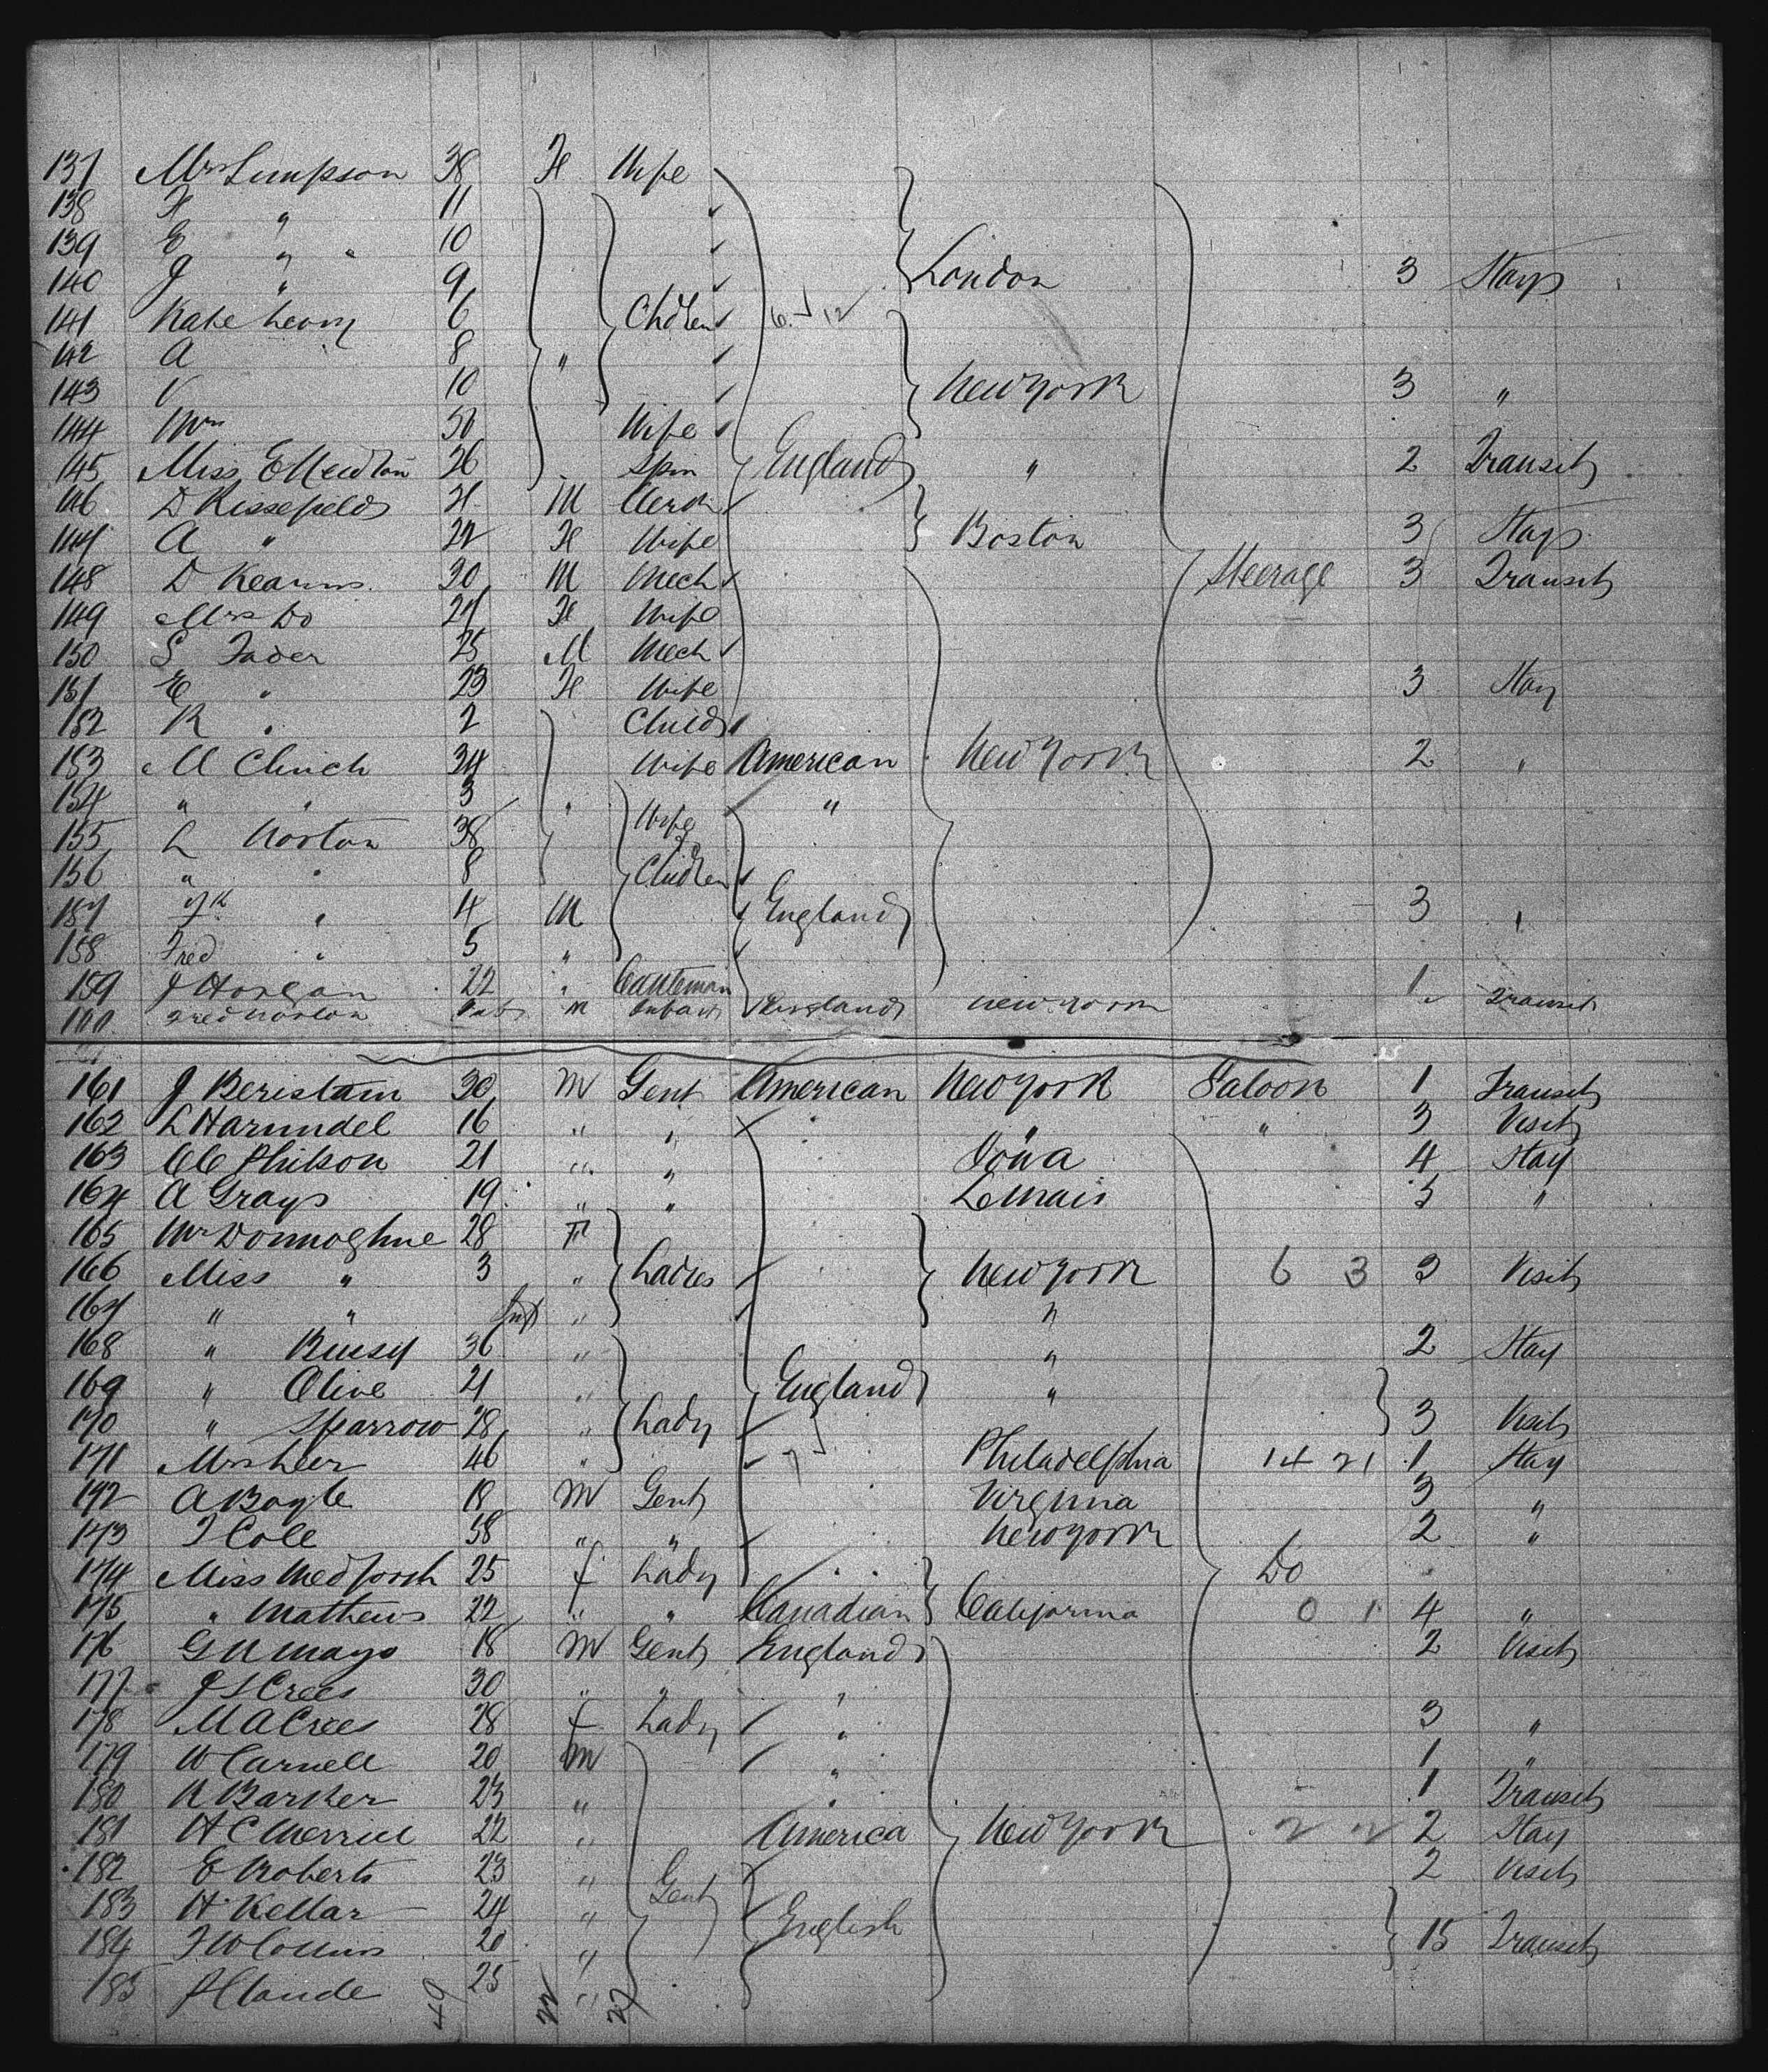 137 Mrs Simpson 38 F Wife
138 F " 11
139 E " " 10
140 J " 9 London 3 Stay
141 Kate Leary 6 Chdlen 6 12
142 A 8 "
143 V 10 New York 3 "
144 Mrs Wife
145 Miss E Newton 26 Spin England " 2 Transit
146 D 21 M Clerk
147 A " 22 F Wife Boston 3 Stay
148 D Kearns 30 M Mech Steerage 3 Transit
149 Mrs Do 27 F Wife
150 S Fader 25 M Mech
151 E " 23 F Wife 3 Stay
152 R " 2 Child
153 M Clinch 34 Wife American New York 2 "
154 " " 3 " "
155 L Norton 38 Wife
156 " " 8 Children
157 " 4 M England 3 "
158 Fred " 5 "
159 J Horgan 22 " 1 Transit
160 Fred Norton M Infant England New York
161 J Beristain 30 M Gent American New York Saloon 1 Transit
162 L Harundel 16 " " " " " 3 Visit
163 21 " " Iowa 4 Stay
164 A Grays 19 " " Le Mars 3 "
165 Mrs Donnoghue 28 F
166 Miss " 3 " Ladies New York 6 3 3 Visit
167 " " Inf " "
168 " 36 " " 2 Stay
169 " Olive 21 " England "
170 " Sparrow 28 " Lady 3 Visit
171 Mrs Leer 46 " 7 Philadelphia 14 21 1 Stay
172 A Boyle 18 M Gent Virginia 3 "
173 J Cole 58 " " New York 2 "
174 Miss Medforth 25 f Lady Do
175 " Mathews 22 " " Canadian California 0 1 4 "
176 G N Mays 18 M Gent England 2 Visit
177 J S Crees 30 " " "
178 M A Crees 28 f Lady " 3 "
179 W Carnell 20 M " 1 "
180 Barker 23 " " 1 Transit
181 H C Merrill 22 " America New York 2 2 2 Stay
182 E Roberts 23 " Gent 2 Visit
183 H Kellar 24 " English
184 J W Collins 20 " 15 Transit
185 J Claude 25 "
49 22 27